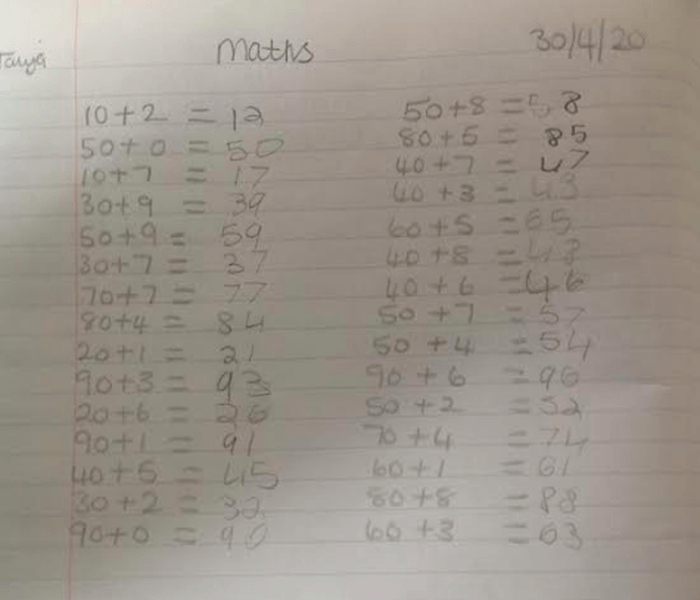 Tanya Maths 30/4/20
10+2 = 12
50+0 = 50
10+7 = 17
30+9 = 39
50+9 = 59
30+7 = 37
70+7 = 77
80+4 = 84
20+1 = 21
90+3 = 93
20+6 = 26
90+1 = 91
40+5 = 45
30+2 = 32
90+0 = 90
50+8 = 58
80+5 = 85
40+7 = 47
40+3 = 43
60+5 = 65
40+8 =
40+6 = 46
50+7 = 57
50+4 = 54
90+6 = 96
50+2 = 52
70+4 = 74
60+1 = 61
80+8 = 88
60+3 = 63